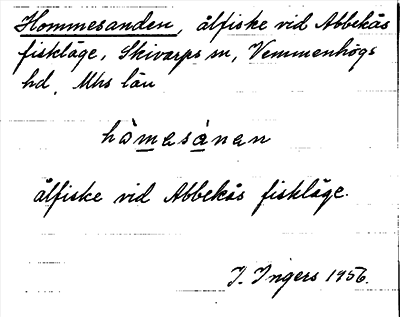 Hommesanden, ålfiske vid Abbekås
fiskläge, Skivarps sn, Vemmenhögs
hd, Mhs län
hòmesànen
ålfiske vid Abbekås fiskläge.
I. Ingers 1956.